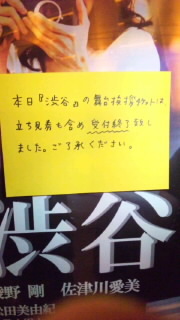 本日『渋谷』の舞台挨拶チケットは
立ち見券も含め受付終了致し
ました。ご了承ください。
渋谷
野 剛 佐津川愛美
田美由紀